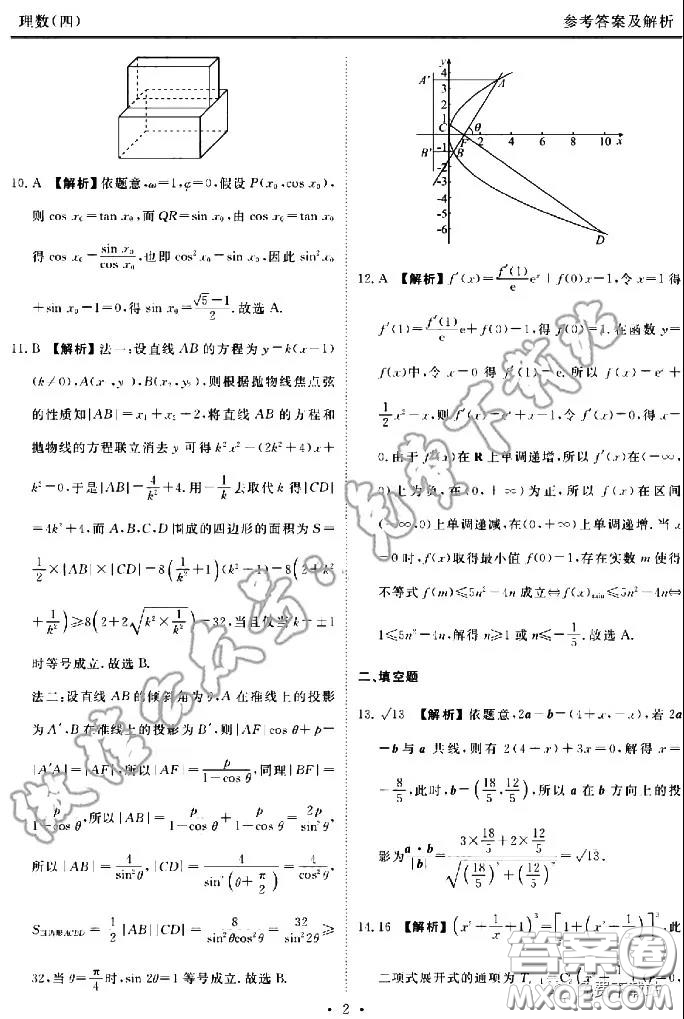 理数(四)
参考答案及解析
10. A 【解析】依题意,ω=1,φ=0,假设 P(x₀,cos x₀),
则 cos x₀=tan x₀,而 QR=sin x₀,由 cos x₀=tan x₀
得 cos x₀=sin x₀/cos x₀,也即 cos²x₀=sin x₀,因此 sin²x₀
+sin x₀-1=0,得 sin x₀=(√5-1)/2.故选 A.
11. B 【解析】法一:设直线 AB 的方程为 y=k(x-1)
(k≠0),A(x₁,y₁),B(x₂,y₂),则根据抛物线焦点弦
的性质知|AB|=x₁+x₂+2,将直线 AB 的方程和
抛物线的方程联立消去 y 可得 k²x²-(2k²+4)x+
k²=0,于是|AB|=4/k²+4.用-1/k去取代 k 得|CD|
=4k²+4,而 A,B,C,D 围成的四边形的面积为 S=
1/2×|AB|×|CD|=8(1/k²+1)(k²+1)=8(2+k²
+1/k²)≥8(2+2√(k²×1/k²))=32,当且仅当 k=±1
时等号成立.故选 B.
法二:设直线 AB 的倾斜角为 θ,A 在准线上的投影
为 A′,B 在准线上的投影为 B′,则|AF|cos θ+p=
|A′A|=|AF|,所以|AF|=p/(1-cos θ),同理|BF|=
p/(1+cos θ),所以|AB|=p/(1-cos θ)+p/(1+cos θ)=2p/sin²θ,
所以 |AB|=4/sin²θ,|CD|=4/sin²(θ+π/2)=4/cos²θ,
S四边形ACBD=1/2|AB||CD|=8/(sin²θcos²θ)=32/sin²2θ≥
32,当 θ=π/4时,sin 2θ=1 成立.故选 B.
y
A′ 4 A
3
2
C 1 θ
O F 2 4 6 8 10 x
B′ -1 B
-2
-3
-4
-5
-6 D
12. A 【解析】f′(x)=f′(1)/e eˣ+f(0)x-1,令 x=1 得
f′(1)=f′(1)/e e+f(0)-1,得 f(0)=1.在函数 y=
f(x)中,令 x=0 得 f′(1)=e.所以 f(x)=eˣ+
1/2x²-x,则 f′(x)=eˣ+x-1,令 f′(x)=0,得 x=
0.由于 f′(x)在 R 上单调递增,所以 f′(x)在(-∞,
0)上为负,在(0,+∞)为正,所以 f(x)在区间
(-∞,0)上单调递减,在(0,+∞)上单调递增.当 x
=0时,f(x)取得最小值 f(0)=1,存在实数 m 使得
不等式 f(m)≤5n²-4n 成立⇔f(x)min≤5n²-4n⇔
1≤5n²-4n,解得 n≥1 或 n≤-1/5.故选 A.
二、填空题
13. √13 【解析】依题意,2a-b=(4+x,-x),若 2a
-b 与 a 共线,则有 2(4+x)+3x=0,解得 x=
-8/5,此时,b=(18/5,12/5),所以 a 在 b 方向上的投
影为 a·b/|b|=(3×18/5+2×12/5)/√((18/5)²+(12/5)²)=√13.
14. 16 【解析】(x²+1/x+1)³=[1+(x²+1/x)]³,此
二项式展开式的通项为
· 2 ·
微信公众号:免费下载站
答案卷